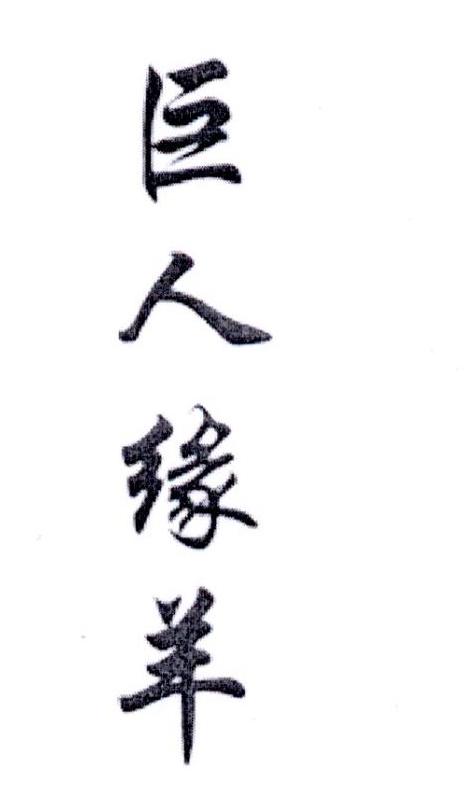 巨人缘羊